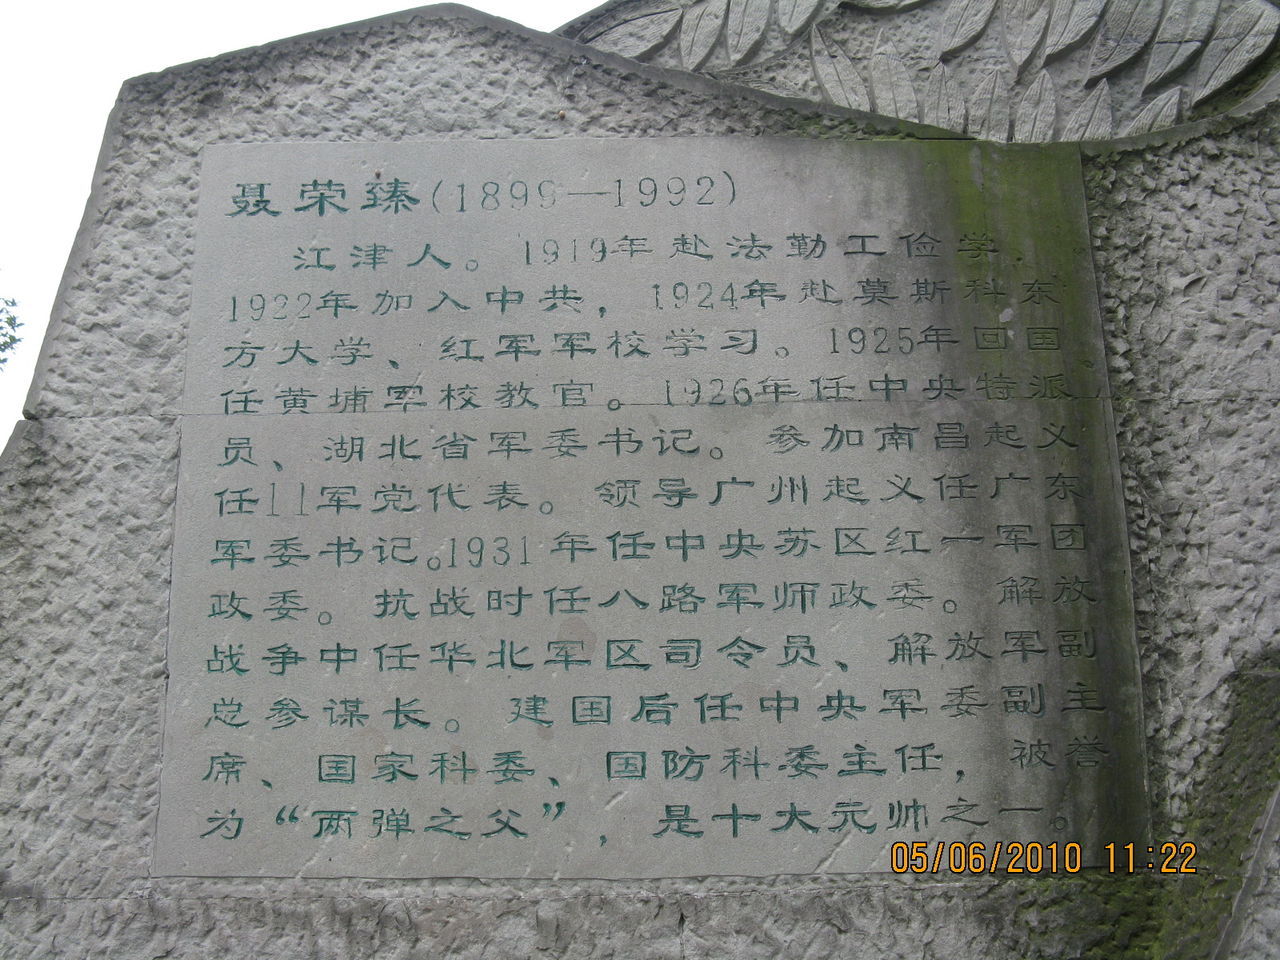 聂荣臻(1899—1992)
江津人。1919年赴法勤工俭学,
1922年加入中共，1924年赴莫斯科东
方大学、红军军校学习。1925年回国、
任黄埔军校教官。1926年任中央特派
员、湖北省军委书记。参加南昌起义
任11军党代表。领导广州起义任广东
军委书记。1931年任中央苏区红一军团
政委。抗战时任八路军师政委。解放
战争中任华北军区司令员、解放军副
总参谋长。建国后任中央军委副主
席、国家科委、国防科委主任，被誉
为“两弹之父”，是十大元帅之一。
05/06/2010 11:22